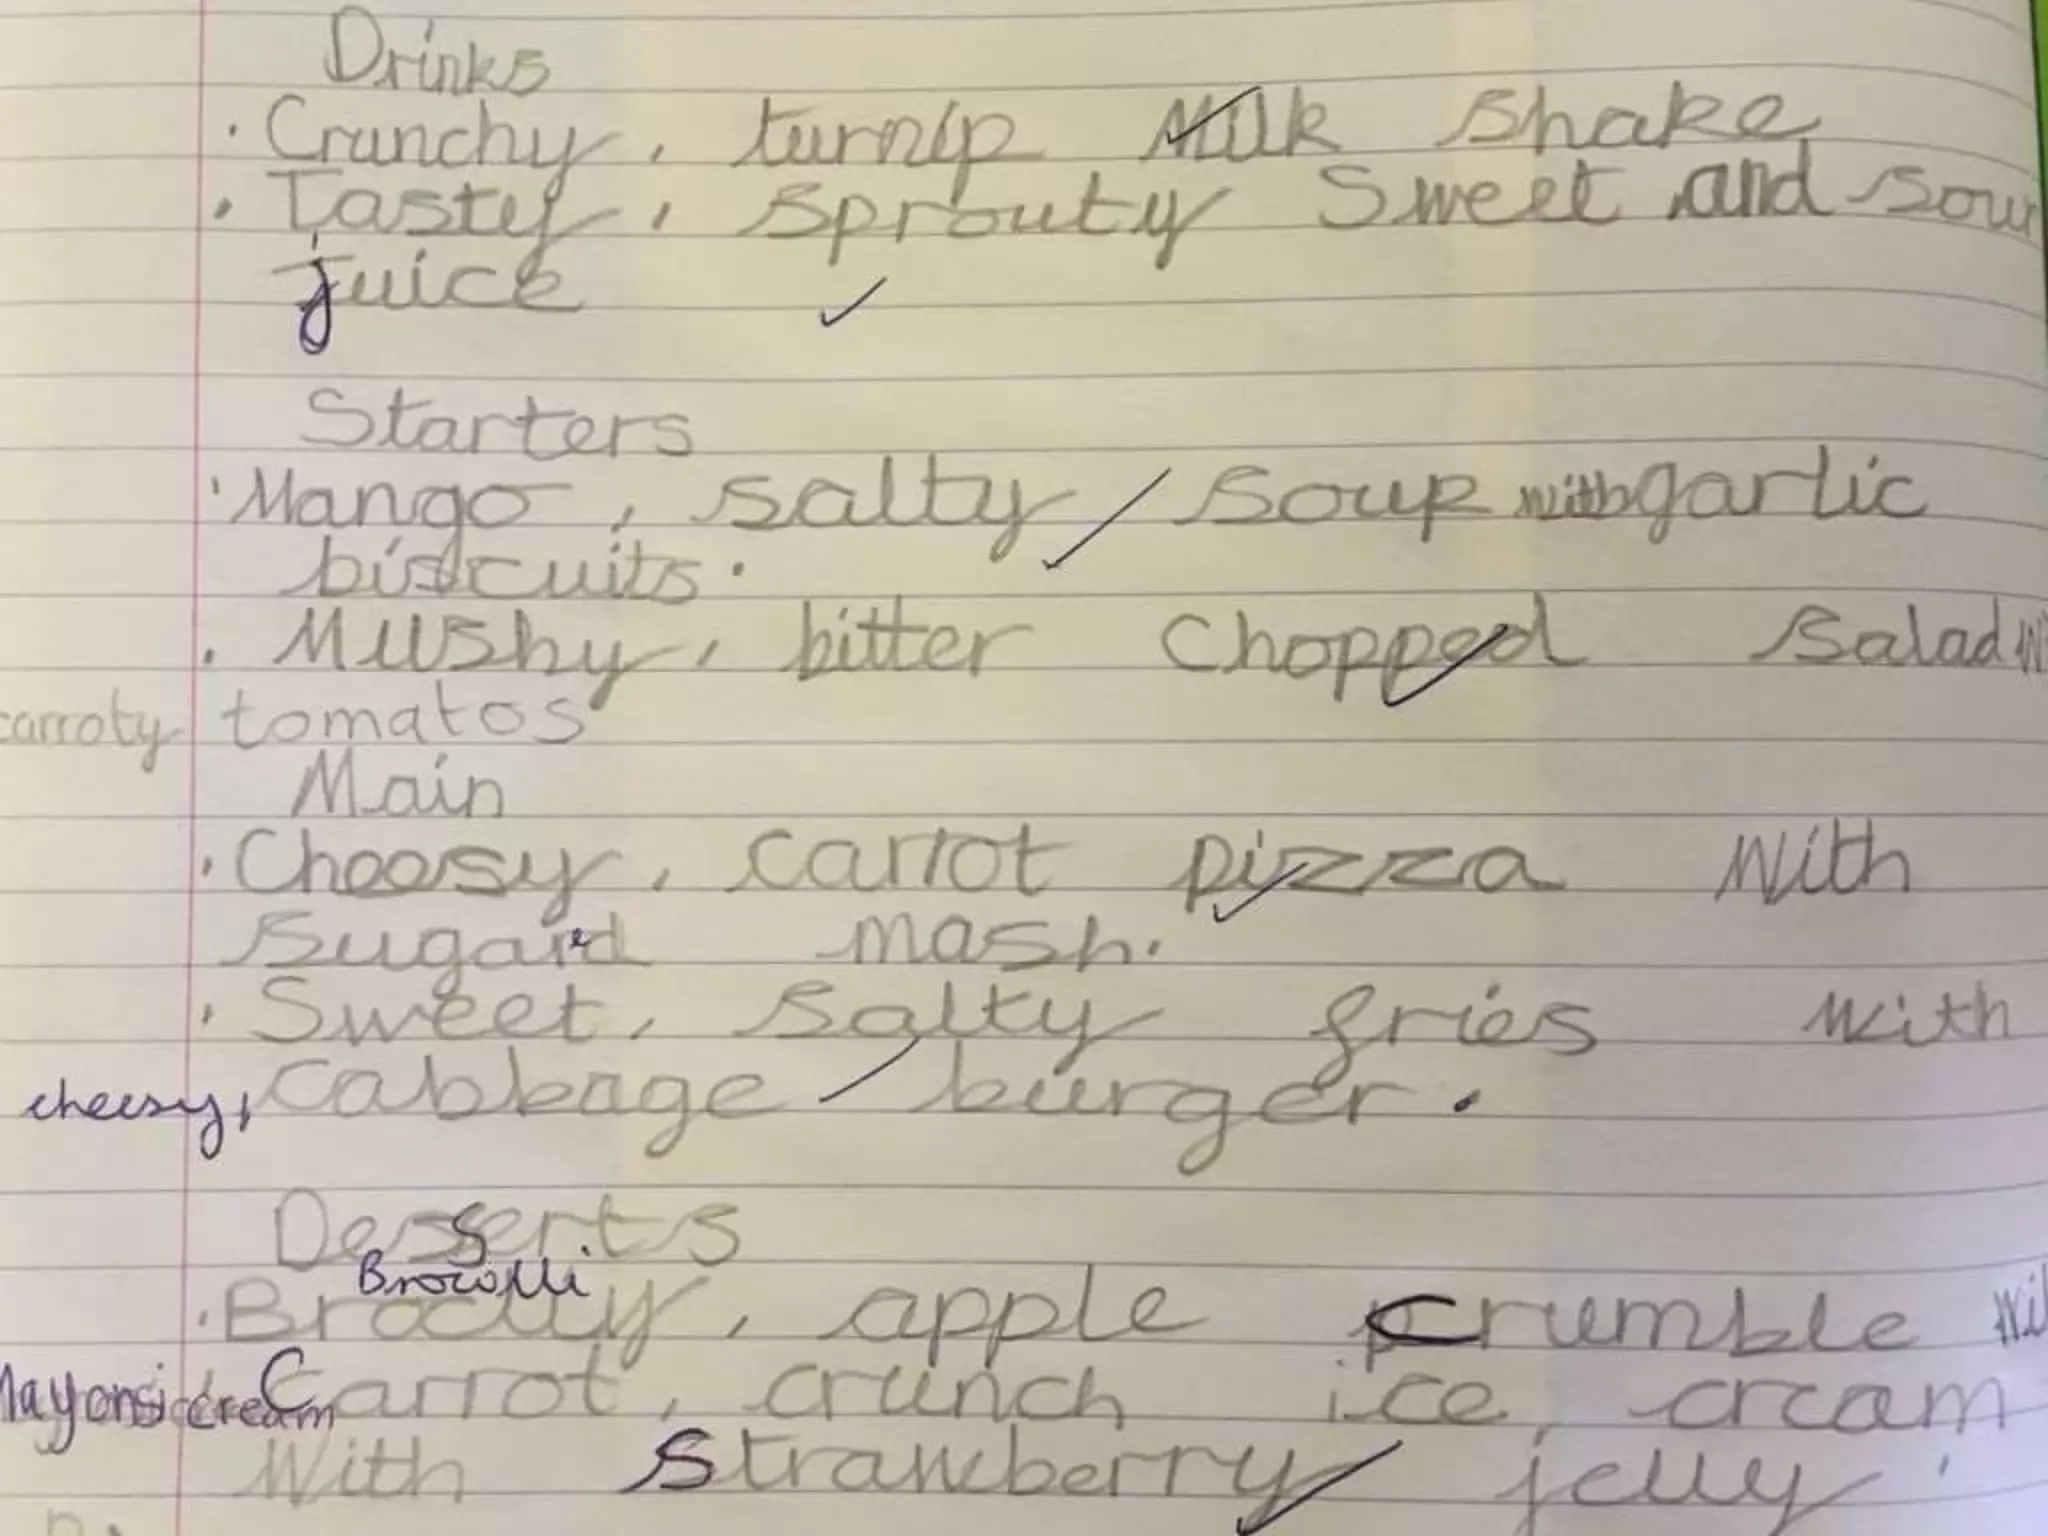 Drinks
• Crunchy, turnip Milk shake
• Tasty, sprouty Sweet and sour
juice
Starters
• Mango, salty soup with garlic
biscuits.
• Mushy, bitter Chopped salad
carroty tomatos
Main
• Cheesy, carrot pizza with
sugared mash.
• Sweet, salty fries with
cheesy, cabbage burger.
Desserts
Brocolli
• Broclly, apple crumble
Carrot, crunch ice cream
cream
with strawberry jelly.